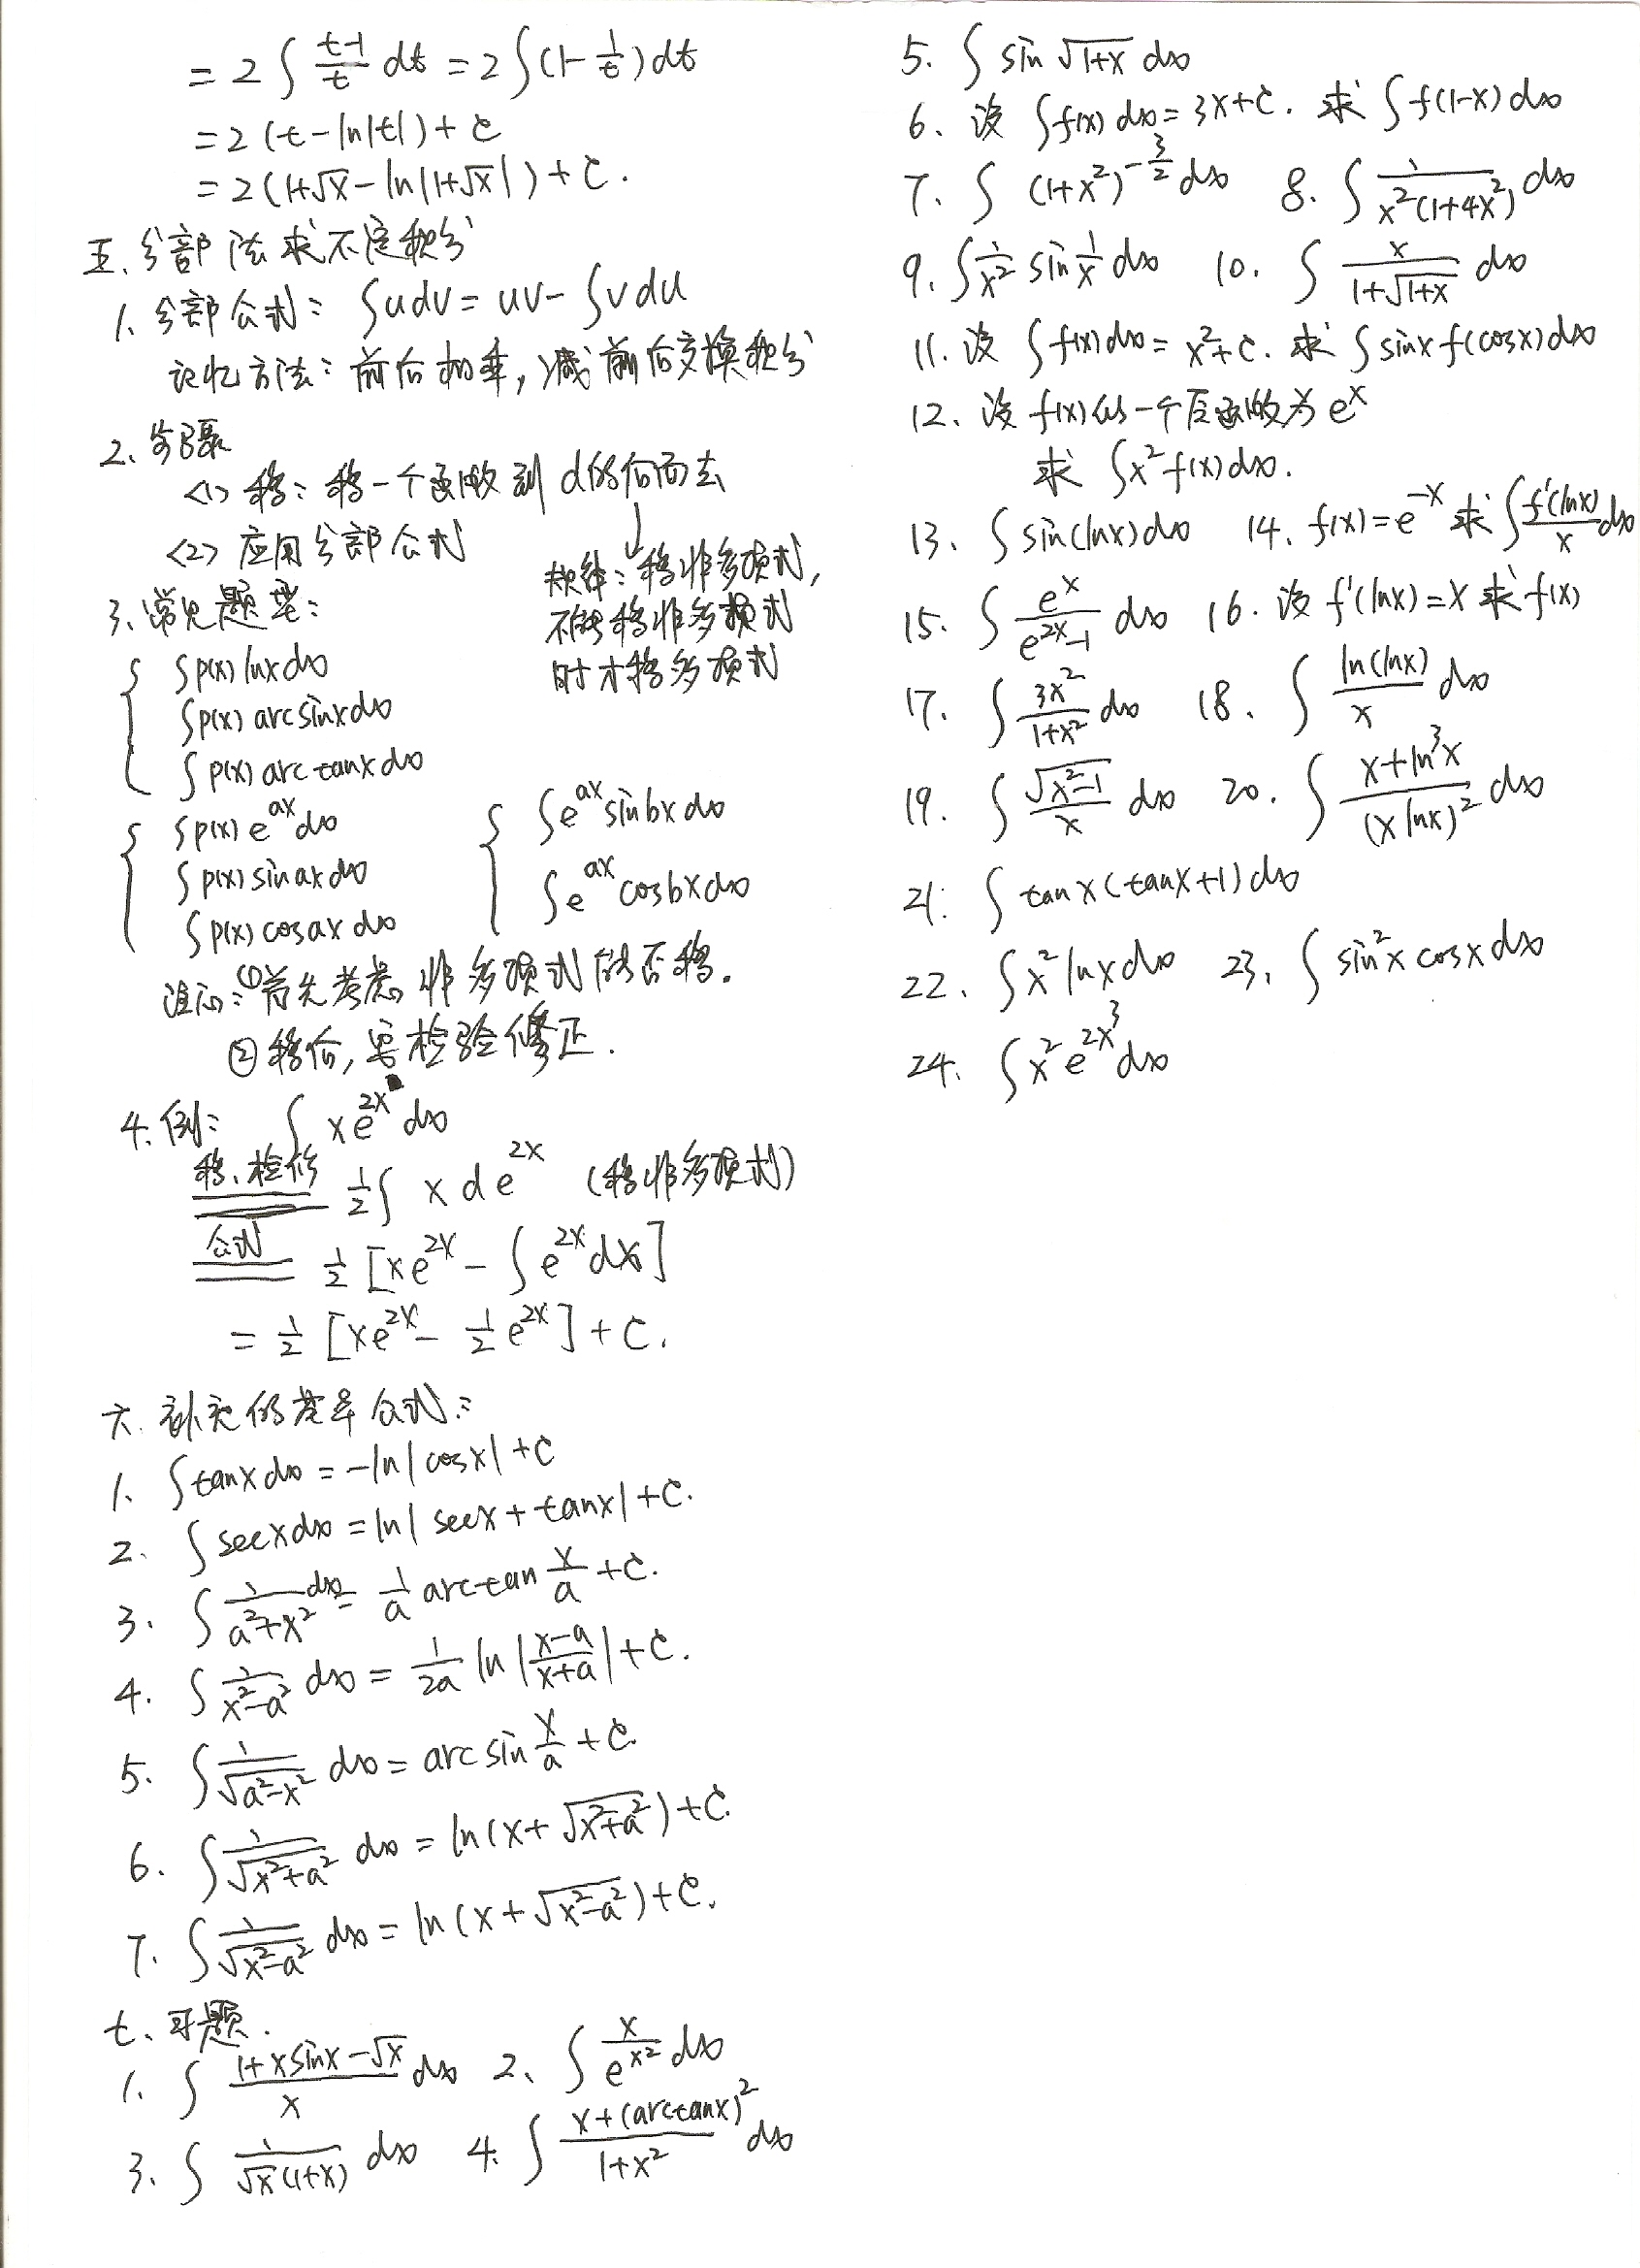 = 2∫ (t-1)/t dt = 2∫(1-1/t)dt
= 2(t-ln|t|)+C
= 2(1+√x-ln|1+√x|)+C.
五、分部法求不定积分
1、分部公式: ∫udv=uv-∫vdu
记忆方法: 前后相乘,减前后交换积分
2、步骤
<1> 移: 移一个函数到d的后面去
<2> 应用分部公式
↓
规律: 移非多项式,
不能移非多项式
时才移多项式
3、常见题型:
∫p(x)lnxdx
∫p(x)arcsinxdx
∫p(x)arctanxdx
∫p(x)e^{ax}dx
∫p(x)sinaxdx
∫p(x)cosaxdx
∫e^{ax}sinbxdx
∫e^{ax}cosbxdx
注记: ①首先考虑非多项式能否移.
②移后,要检验修正.
4.例: ∫xe^{2x}dx
移、检修 1/2∫xde^{2x} (移非多项式)
公式 1/2[xe^{2x}-∫e^{2x}dx]
= 1/2[xe^{2x}-1/2e^{2x}]+C.
六、补充的基本公式:
1、∫tanxdx=-ln|cosx|+C
2、∫secxdx=ln|secx+tanx|+C.
3、∫1/(a²+x²)dx=1/a arctan x/a+C.
4、∫1/(x²-a²)dx=1/(2a) ln|(x-a)/(x+a)|+C.
5、∫1/√(a²-x²)dx=arcsin x/a+C.
6、∫1/√(x²+a²)dx=ln(x+√(x²+a²))+C.
7、∫1/√(x²-a²)dx=ln(x+√(x²-a²))+C.
七、习题.
1、∫(1+xsinx-√x)/x dx 2、∫x/e^{x²}dx
3、∫1/(√x(1+x))dx 4、∫(x+(arctanx)²)/(1+x²)dx
5、∫sin√(1+x)dx
6、设∫f(x)dx=3x+C. 求∫f(1-x)dx
7、∫(1+x²)^{-3/2}dx 8、∫1/(x²(1+4x²))dx
9、∫1/x² sin 1/x dx 10、∫x/(1+√(1+x))dx
11、设∫f(x)dx=x²+C. 求∫sinxf(cosx)dx
12、设f(x)的一个原函数为e^x
求∫x²f(x)dx.
13、∫sin(lnx)dx 14、f(x)=e^{-x} 求∫f'(lnx)/x dx
15、∫e^x/(e^{2x}-1)dx 16、设f'(lnx)=x 求f(x)
17、∫3x²/(1+x²)dx 18、∫ln(lnx)/x dx
19、∫√(x²-1)/x dx 20、∫(x+ln³x)/(xlnx)² dx
21、∫tanx(tanx+1)dx
22、∫x²lnxdx 23、∫sin²xcosxdx
24、∫x²e^{2x³}dx